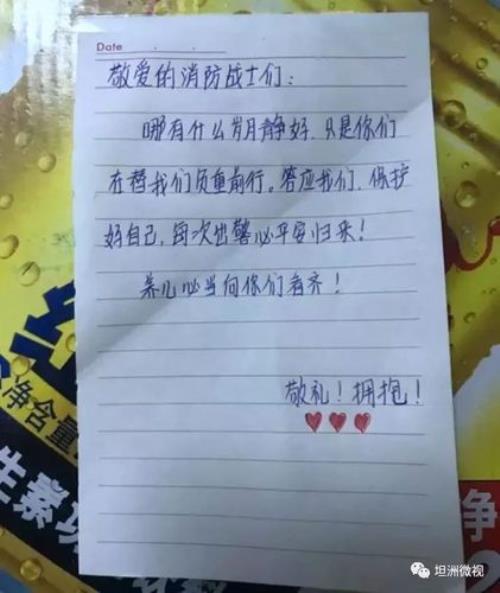 Date
敬爱的消防战士们：
哪有什么岁月静好，只是你们
在替我们负重前行。答应我们，保护
好自己，每次出警必平安归来！
养儿必当向你们看齐！
敬礼！拥抱！
净含量
生素
净
坦洲微视